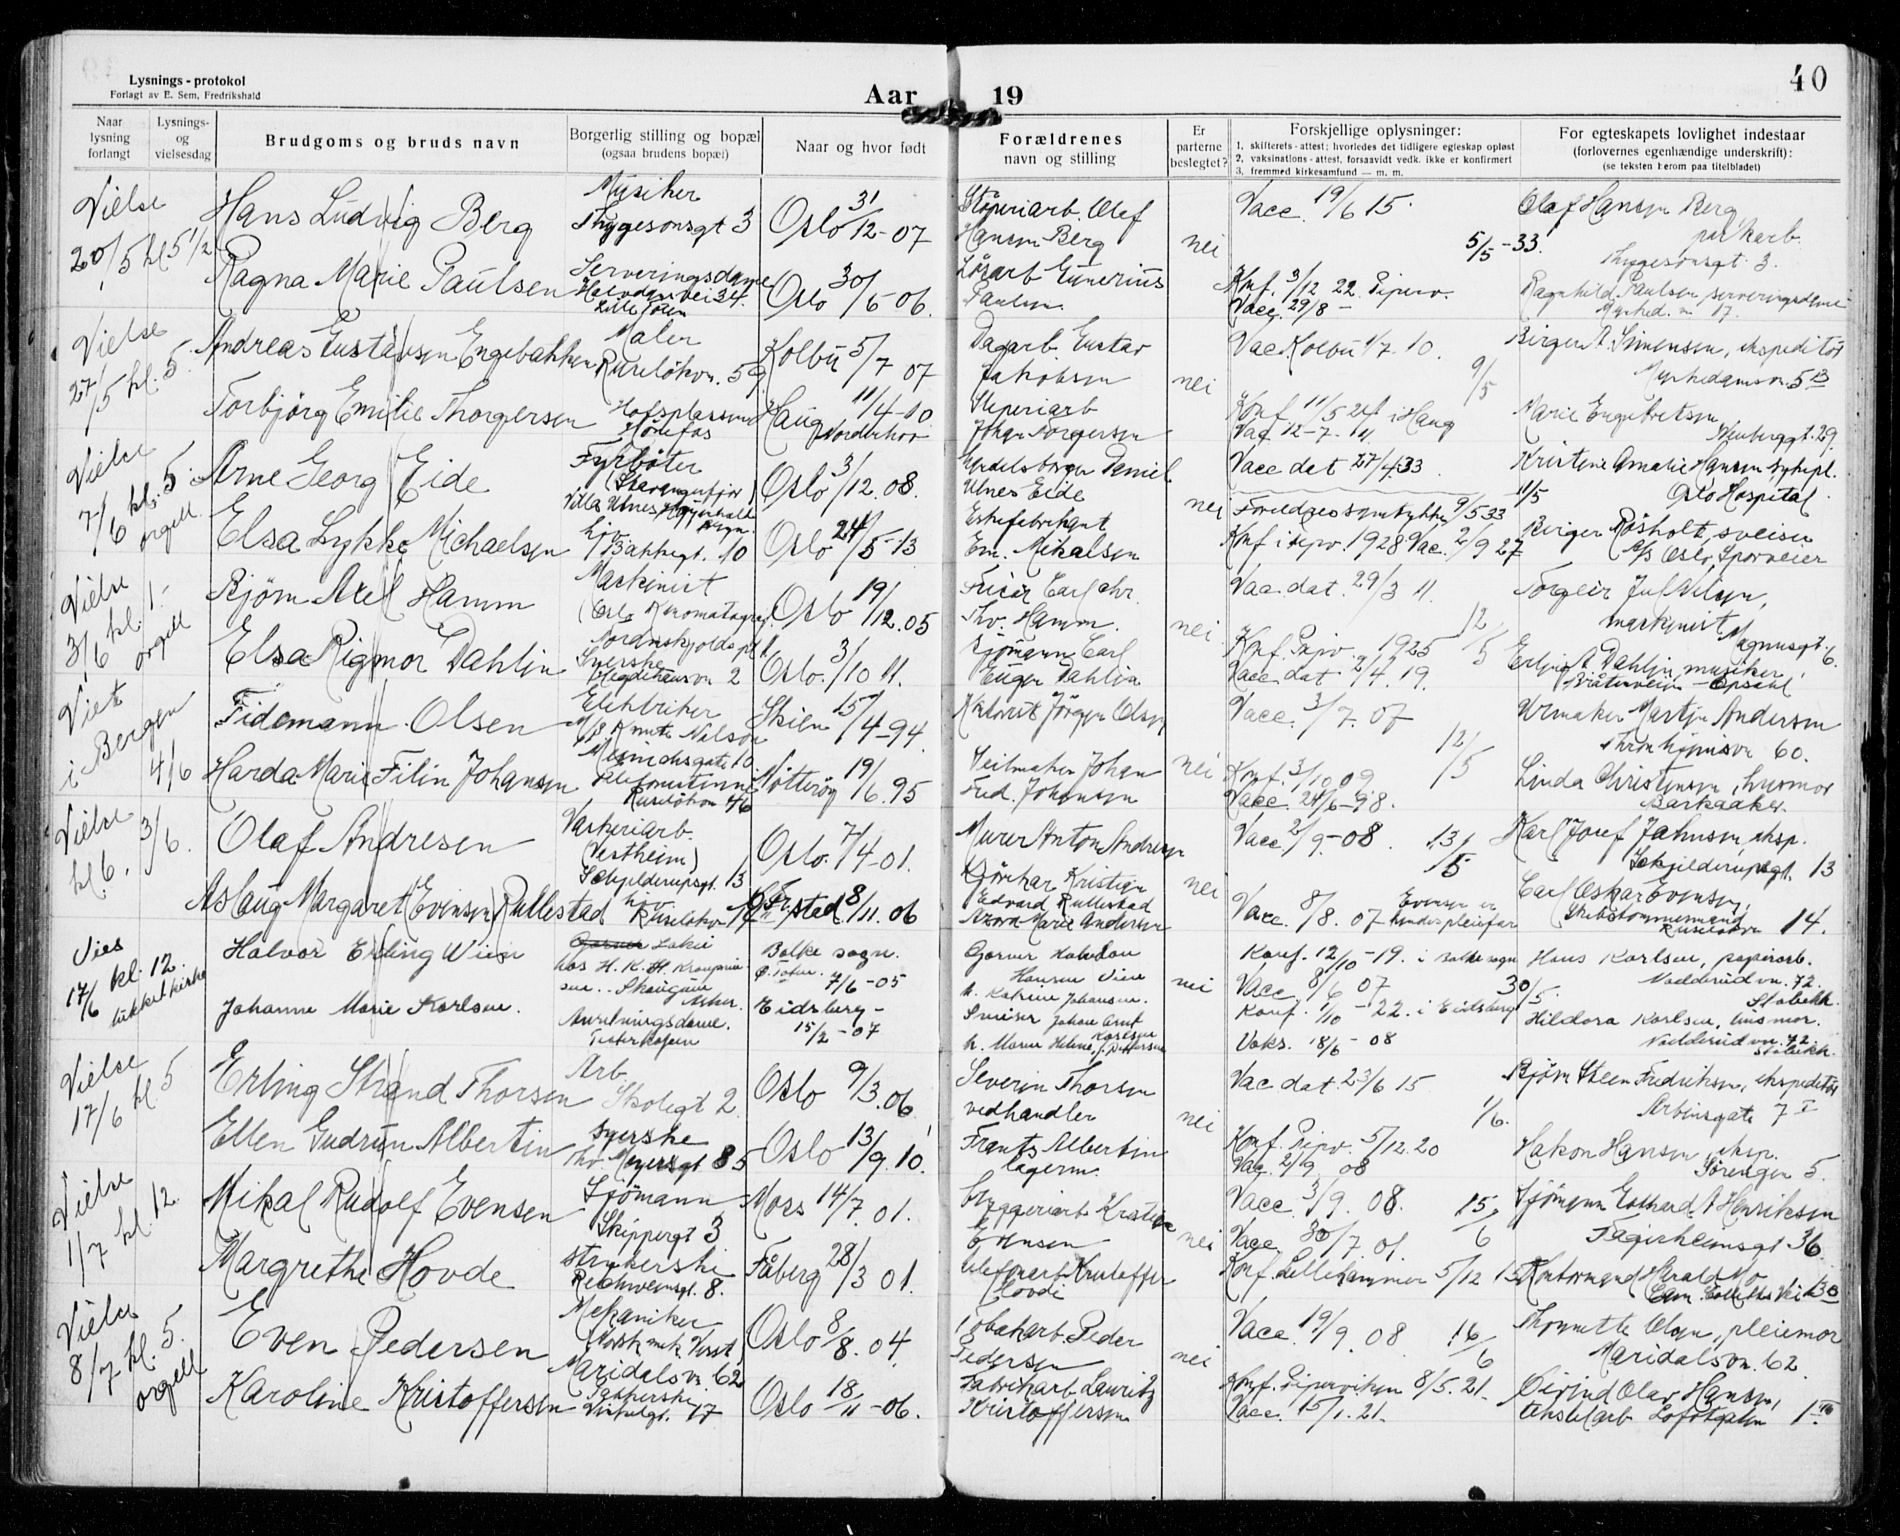 Lysnings-protokol
Forlagt av E. Sem, Fredrikshald
Aar 19
40
Naar lysning forlangt
Lysnings- og vielsesdag
Brudgoms og bruds navn
Borgerlig stilling og bopæl
(ogsaa brudens bopæl)
Naar og hvor født
Forældrenes
navn og stilling
Er parterne beslegtet?
Forskjellige oplysninger:
1. skifterets-attest; hvorledes det tidligere egteskap opløst
2. vaksinations-attest, forsaavidt vedk. ikke er konfirmert
3. fremmed kirkesamfund — m. m.
For egteskapets lovlighet indestaar
(forlovernes egenhændige underskrift):
(se teksten herom paa titelbladet)
Vielse
20/5 kl. 5 1/2
Hans Ludvig Berg
Musiker
Thygesonsgt 3
Oslo 31/12-07
Støperiarb. Olaf
Hansen Berg
nei
Vacc. 19/6 15.
5/5-33.
Olaf Hansen Berg
Thygesonsgt. 3.
Ragna Marie Paulsen
Serveringsdame
Oslo 30/6 06.
Løsarb Gunerius
Paulsen
Konf. 3/12 22 Piperv.
Vacc. 29/8 -
Ragnhild Paulsen serveringsdame
Vielse
27/5 kl: 5.
Andreas Gustavsen Engebakken
Maler
Ruseløkvn. 59
Kolbu 5/7 07
Dagarb. Gustav
Jakobsen
nei
Vac Kolbu 1/7. 10.
9/5
Birger A. Simensen, ekspeditør
Torbjörg Emilie Thorgersen
Hofsplassen
Hønefos
Haug 11/4-10
Norderhov
Sliperiarb
Johan Torgersen
Konf. 11/5 24 i Haug
Vac 12-7. 11
Marie Engebretsen
Vielse
7/6 kl: 5.
orgell
Arne Georg Eide
Fyrbøter
(Stavangerfjor
Oslo 3/12. 08.
Daniel
Ulnes Eide
nei
Vacc dat 27/4.33.
11/5
Kristine Amalie Hansen sykepl.
Oslo Hospital.
Elsa Lykke Michaelsen
hjv.
Bakkegt. 10
Oslo 24/5-13
Eskefabrikant
Em. Mikalsen
Konf i Piperv. 1928 Vac. 2/9 27
Birger Røsholt, sveiser
A/S Oslo Sporveier
Vielse
3/6 kl. 1.
orgell
Bjørn Axel Hamm
Maskinist
Oslo 19/12.05
Frisör Carl Chr.
Thv. Hamm.
nei
Vac. dat. 29/3 11.
12/5
Torgeir Jul Nilsen,
maskinist
Magnusgt. 6.
Elsa Rigmor Dahlin
Syerske
Hegdehausvn 2
Oslo. 3/10 11.
Sjömann Carl
Eugen Dahlin
Konf. Piperv. 1925
Vacc dat 2/4. 19.
Erling A Dahlin, musiker,
Viet
i Bergen
4/6
Tidemann Olsen
Elektriker
M/S Knute Nelson
Skien 15/4-94
Jörgen Olsen
nei
Vacc. 3/7. 07
12/5
Urmaker Martin Andersen
Trondhjemsvn 60.
Harda Marie Filin Johansen
Telefonistinne
Ruseløkvn 46
Nøtterøy 19/6.95
Seilmaker Johan
Fred. Johansen
Konf. 3/10 09
Vacc 24/6-98.
Linda Christensen, husmor
Barkaaker.
Vielse
kl. 6. 3/6.
Olaf Andresen
Vaskeriarb.
(Vestheim)
Schjelderupsgt. 13
Oslo. 7/4-01.
Murer Anton Andresen
nei
Vacc 2/9-08.
13/5
Karl Josef Jahnsen eksp.
Schjelderupsgt. 13
Aslaug Margaret (Evensen) Rullestad
hjv.
Fr.stad 8/11. 06
Kjørekar Kristian
Edvard Rullestad
Marie Andersen
Vacc. 8/8. 07
Evensen er
hendes pleiefar
Carl Oskar Evensen,
Skibstømmermand
Ruseløkvn 14.
Vies
17/6 kl. 12.
lukket kirke
Halvor Erling Wien
Gartner Lakei
hos H. K. H. Kronprin-
sen. Skaugum
Asker.
Balke sogn.
Ø. Toten.
7/6-05
Garver Halvdan
Hansen Vien
h. Katrine Johansen.
nei
Konf. 12/10-19. i Balke sogn
Vacc 8/6 07
30/5.
Hans Karlsen, papirarb.
Nadderudvn. 72.
Stabekk.
Johanne Marie Karlsen.
Anretningsdame.
Eidsberg-
15/2-07
Sveiser Johan Arnt
Karlsen
Konf. 1/10-22. i Eidsberg
Vaks. 18/6-08
Hildora Karlsen, husmor.
Nadderudvn. 72.
Stabekk.
Vielse
17/6 kl. 5
Erling Strand Thorsen
Arb.
Skolegt 2.
Oslo 9/3.06
Severin Thorsen
vedhandler
nei
Vac dat 23/6 15
1/6.
Bjørn Steen Fredriksen, ekspeditør
Arbinsgate 7 I
Ellen Gudrun Albertin
Syerske
Thv. Meyersgt 85
Oslo 13/9.10.
Frants Albertin
lagerm.
Konf. Piperv. 5/12.20
Vac. 2/9 08
Hakon Hansen, eksp.
Sørengen 5.
Vielse
1/7 kl. 12.
Mikal Rudolf Evensen
Sjømann
Skippergt 3
Moss 14/7. 01.
Bryggeriarb Kristian
Evensen
nei
Vacc. 3/9. 08.
15/6
Sjømann Edvard A Henriksen
Fagerheimsgt 36.
Margrethe Hovde
strykerske
Reichweinsgt. 8.
Fåberg 28/3 01.
Kristoffer
Hovde
Vacc 30/7. 01.
Konf. Lillehammer 5/12 15
Kontormand Harald Mo
Cam. Colletts vei
Vielse
8/7 kl: 5.
orgell
Even Pedersen
Mekaniker
Maridalsvn. 62
Oslo 8/8. 04.
Tobakarb. Peder
Pedersen
nei
Vacc. 19/9. 08.
16/6
Thonette Olsen, pleiemor
Maridalsvn. 62
Karoline Kristoffersen
Pakkerske
Oslo 18/11-06.
Fabrikarb. Lauritz
Kristoffersen
Konf. Piperviken 8/5. 21.
Vacc. 15/1. 21.
Øivind Olav Hansen,